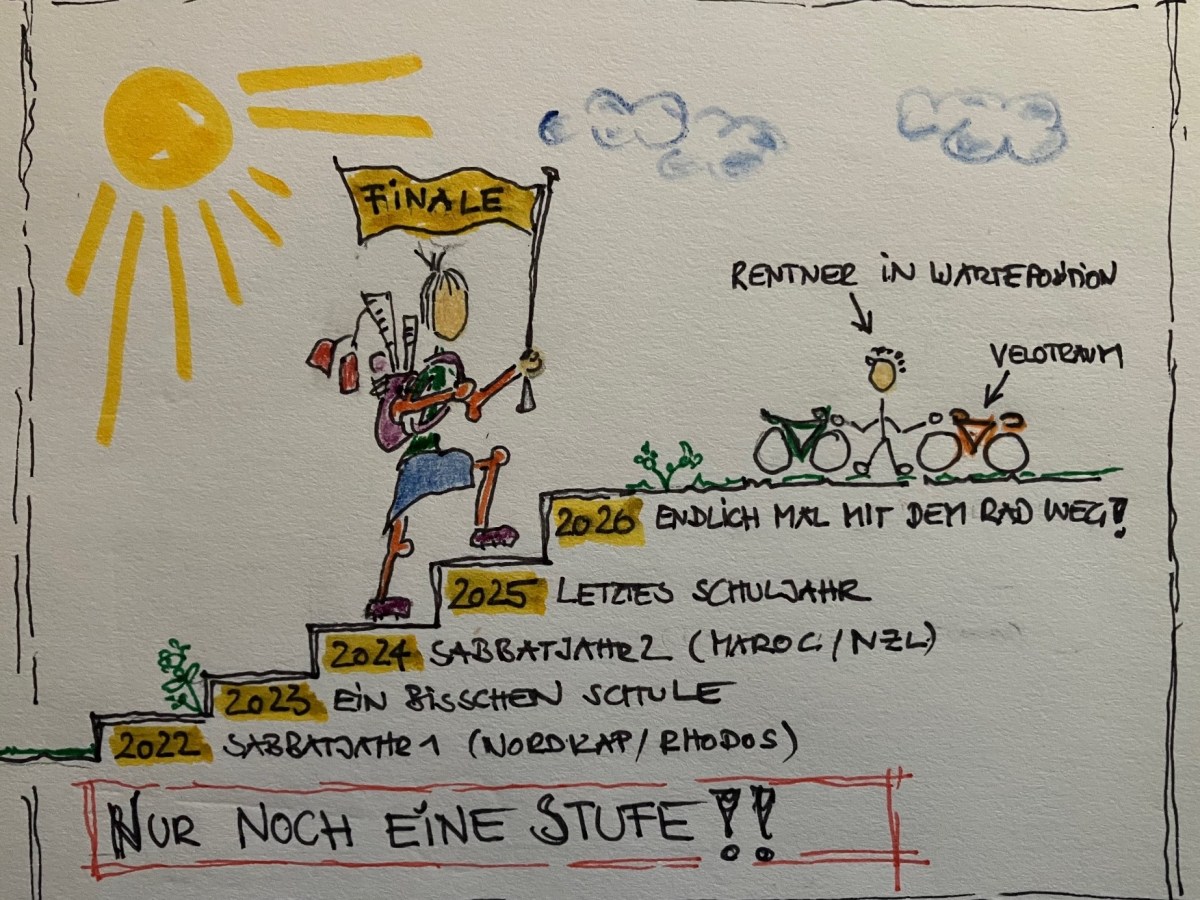 FINALE
RENTNER IN WARTEPOSITION
VELOTRAUM
2026 ENDLICH MAL MIT DEM RAD WEG!
2025 LETZTES SCHULJAHR
2024 SABBATJAHR 2 (MAROC/NZL)
2023 EIN BISSCHEN SCHULE
2022 SABBATJAHR 1 (NORDKAP/RHODOS)
NUR NOCH EINE STUFE!!